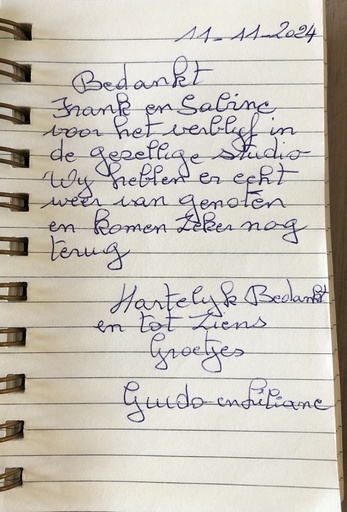 11-11-2024
Bedankt
Frank en Sabine
voor het verblyf in
de gezellige studio
Wy hebben er echt
weer van genoten
en komen zeker nog
terug
Hartelyk Bedankt
en tot Ziens
Groetjes
Guido en Liliane